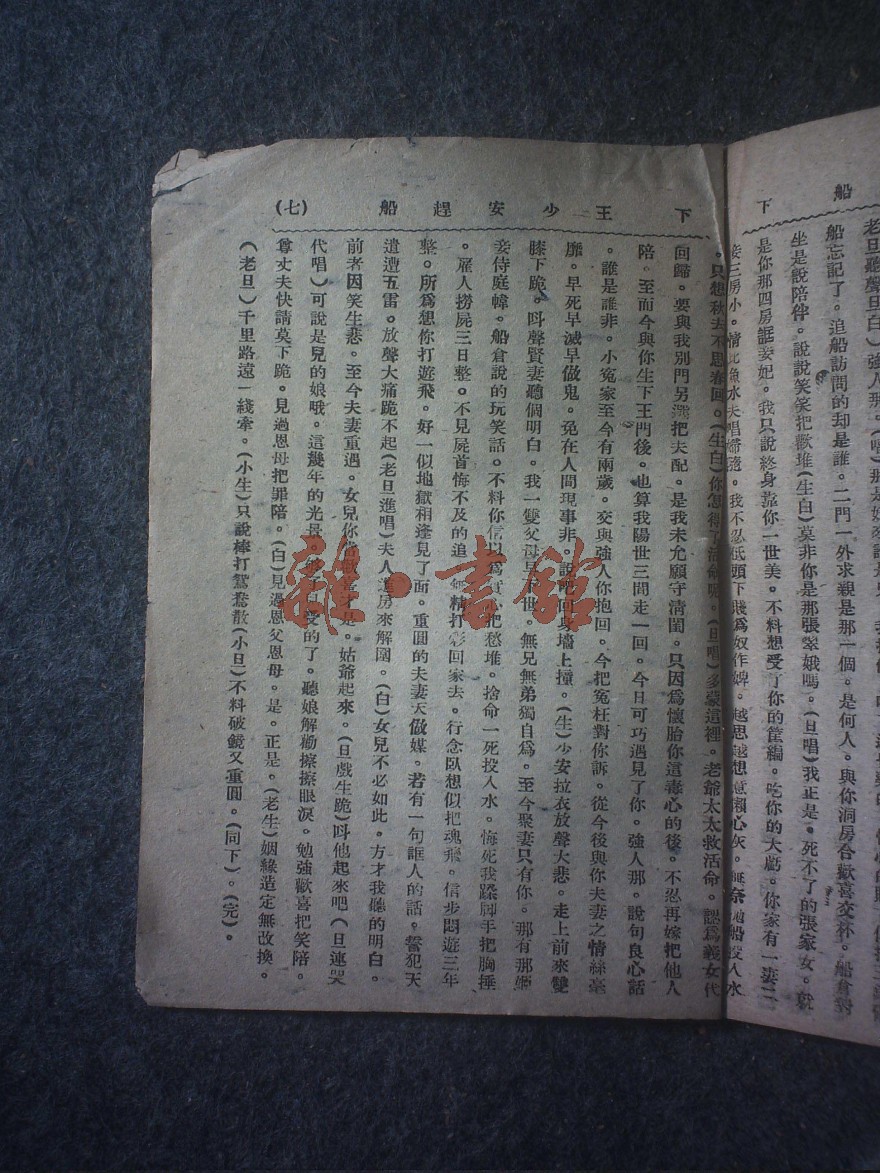 船
下
船忘記了。追船訪問的却是誰。二門一外求親是那一個。是何人。與你洞房合歡喜交杯。船倉對
坐是說陪伴。說說笑笑把歡堆(生白)莫非你是那張翠娥嗎。(旦唱)我正是。死不了的張家女。就
是你那四房誆妾妃。我只說終身靠你一世美。不料想受了你的筐編。吃你的大虧。你家有一妻二
妾三房小。情比魚水夫唱婦隨。我不忍低頭下賤爲奴作婢。越思越想意懶心灰。無奈跑船投入水
下 王少安趕船 (七)
。只想秋去不思春回。(生白)你怎得了活命呢。(旦唱)多蒙這裡。老爺太太救活命。認爲義女代
回歸。要與我別門另選把夫配。是我未允願守清閨。只因爲懷胎你這毒心的後。不忍再嫁把他人
陪。至而今與你生下王門後。也算我陽世三間走一回。今日可巧遇見了你。強人那。說句良心話
。誰是誰非。小冤家至今有兩歲。交與強人你抱回。今把冤枉對你訴。從今後與你夫妻之情絲毫
靡。早死早滅早做鬼。免在人間現事非。說吧回身墻上撞。(生)少安拉衣放聲大悲。走上前來雙
膝下跪。呌聲賢妻聽個明白。我一雙父母早去世。無兄無弟獨自爲。至今聚妻只有你。那有那姬
妾侍庭幃。船倉說的玩笑話。不料你信以爲實心把愁堆。捨命一死投入水。悔死我蹂脚手把胸捶
。雇人撈屍三日整。不見屍首悔不及的追。無精打彩回家去。行念臥想似把魂飛。信步悶遊三年
整。所爲想你打遊飛。好一似地獄相逢見了面。重圓的夫妻天做媒。若有一句誆人的話。誓犯天
遣遭五雷。放聲大痛跪不起(老旦進唱)夫人進房來解圍。(白)女兒不必如此。方才我聽的明白。
前者因笑生悲。至今夫妻重遇。女兒你當歡喜才是。姑爺起來。(旦戲生跪)呌他起來吧(旦連哭
代唱)可說是兒的娘哦。這幾年的光景 受的了。聽娘解勸擦擦眼淚。勉強歡喜把笑陪。
尊丈夫快請莫下跪。見過恩母把罪陪。(白)見過恩父恩母。是。正是。(老生)姻緣造定無改換。
(老旦)千里路遠一綫牽。(小生)只說棒打鴛鴦散(小旦)不料破鏡又重圓。(同下)。(完)。
雜·書館